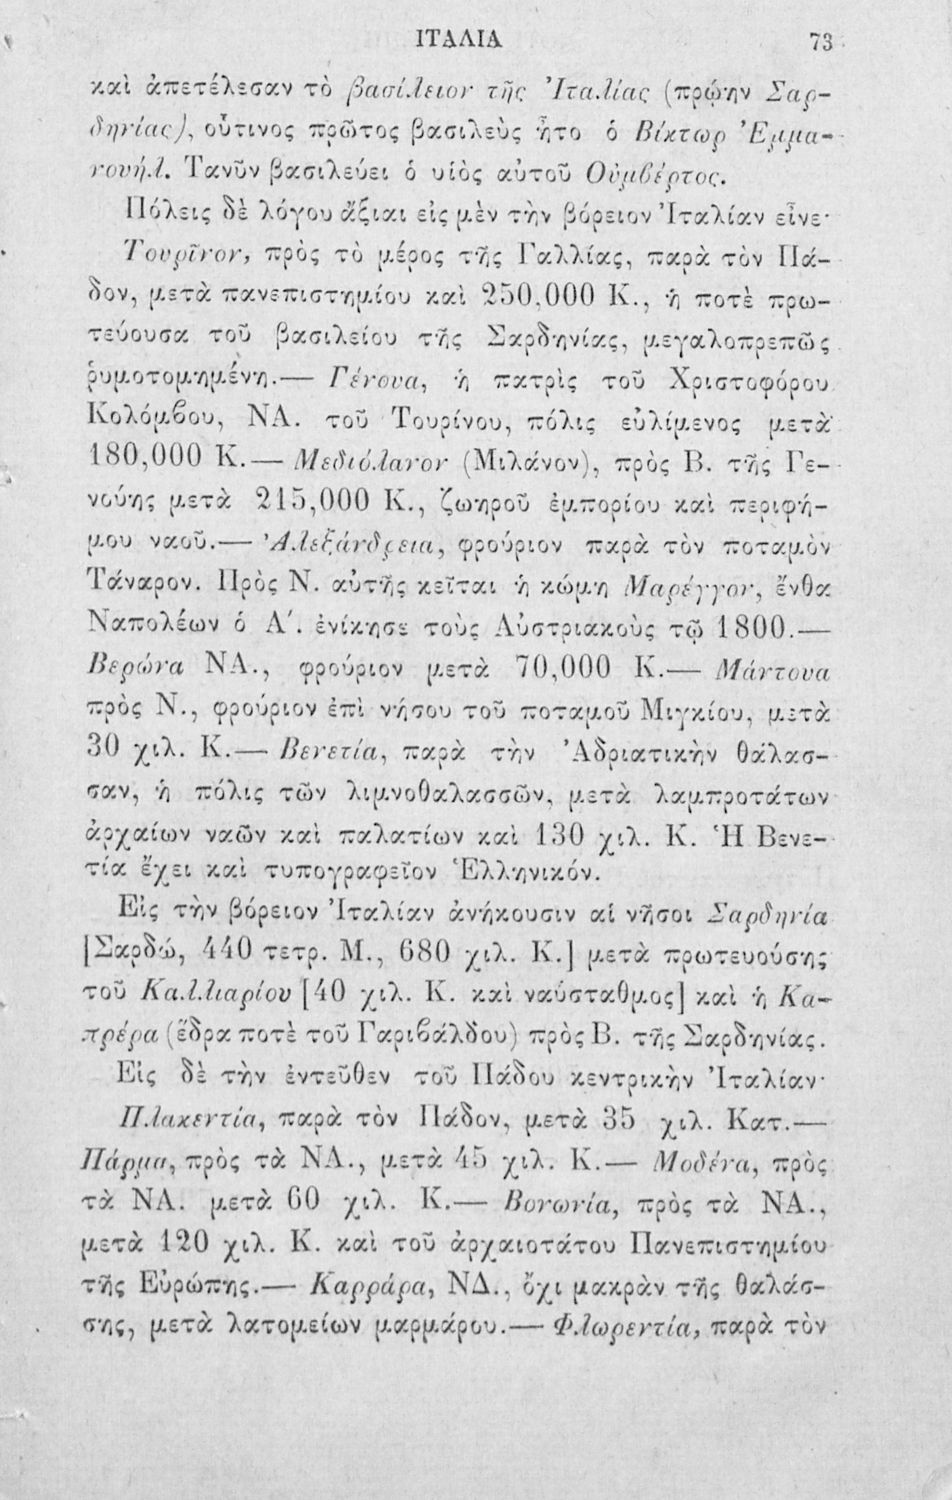 ΙΤΑΛΙΑ 73
καὶ ἀπετέλεσαν τὸ βασίλειον τῆς Ἰταλίας (πρῴην Σαρ-
δηνίας), οὗτινος πρῶτος βασιλεὺς ἦτο ὁ Βίκτωρ Ἐμμα-
νουήλ. Τανῦν βασιλεύει ὁ υἱὸς αὐτοῦ Οὐμβέρτος.
Πόλεις δὲ λόγου ἄξιαι εἰς μὲν τὴν βόρειον Ἰταλίαν εἶνε·
Τουρῖνον, πρὸς τὸ μέρος τῆς Γαλλίας, παρὰ τὸν Πά-
δον, μετὰ πανεπιστημίου καὶ 250,000 Κ., ἡ ποτὲ πρω-
τεύουσα τοῦ βασιλείου τῆς Σαρδηνίας, μεγαλοπρεπῶς
ῥυμοτομημένη.— Γένουα, ἡ πατρὶς τοῦ Χριστοφόρου
Κολόμβου, ΝΑ. τοῦ Τουρίνου, πόλις εὐλίμενος μετὰ
180,000 Κ.— Μεδιόλανον (Μιλάνον), πρὸς Β. τῆς Γε-
νούης μετὰ 215,000 Κ., ζωηροῦ ἐμπορίου καὶ περιφή-
μου ναοῦ.— Ἀλεξάνδρεια, φρούριον παρὰ τὸν ποταμὸν
Τάναρον. Πρὸς Ν. αὐτῆς κεῖται ἡ κώμη Μαρέγγον, ἔνθα
Ναπολέων ὁ Α΄. ἐνίκησε τοὺς Αὐστριακοὺς τῷ 1800.—
Βερώνα ΝΑ., φρούριον μετὰ 70,000 Κ.— Μάντουα
πρὸς Ν., φρούριον ἐπὶ νήσου τοῦ ποταμοῦ Μιγκίου, μετὰ
30 χιλ. Κ.— Βενετία, παρὰ τὴν Ἀδριατικὴν θάλασ-
σαν, ἡ πόλις τῶν λιμνοθαλασσῶν, μετὰ λαμπροτάτων
ἀρχαίων ναῶν καὶ παλατίων καὶ 130 χιλ. Κ. Ἡ Βενε-
τία ἔχει καὶ τυπογραφεῖον Ἑλληνικόν.
Εἰς τὴν βόρειον Ἰταλίαν ἀνήκουσιν αἱ νῆσοι Σαρδηνία
[Σαρδώ, 440 τετρ. Μ., 680 χιλ. Κ.] μετὰ πρωτευούσης
τοῦ Καλλιαρίου [40 χιλ. Κ. καὶ ναύσταθμος] καὶ ἡ Κα-
πρέρα (ἕδρα ποτὲ τοῦ Γαριβάλδου) πρὸς Β. τῆς Σαρδηνίας.
Εἰς δὲ τὴν ἐντεῦθεν τοῦ Πάδου κεντρικὴν Ἰταλίαν·
Πλακεντία, παρὰ τὸν Πάδον, μετὰ 35 χιλ. Κατ.—
Πάρμα, πρὸς τὰ ΝΑ., μετὰ 45 χιλ. Κ.— Μοδένα, πρὸς
τὰ ΝΑ. μετὰ 60 χιλ. Κ.— Βονωνία, πρὸς τὰ ΝΑ.,
μετὰ 120 χιλ. Κ. καὶ τοῦ ἀρχαιοτάτου Πανεπιστημίου
τῆς Εὐρώπης.— Καρράρα, ΝΔ., ὄχι μακρὰν τῆς θαλάσ-
σης, μετὰ λατομείων μαρμάρου.— Φλωρεντία, παρὰ τὸν